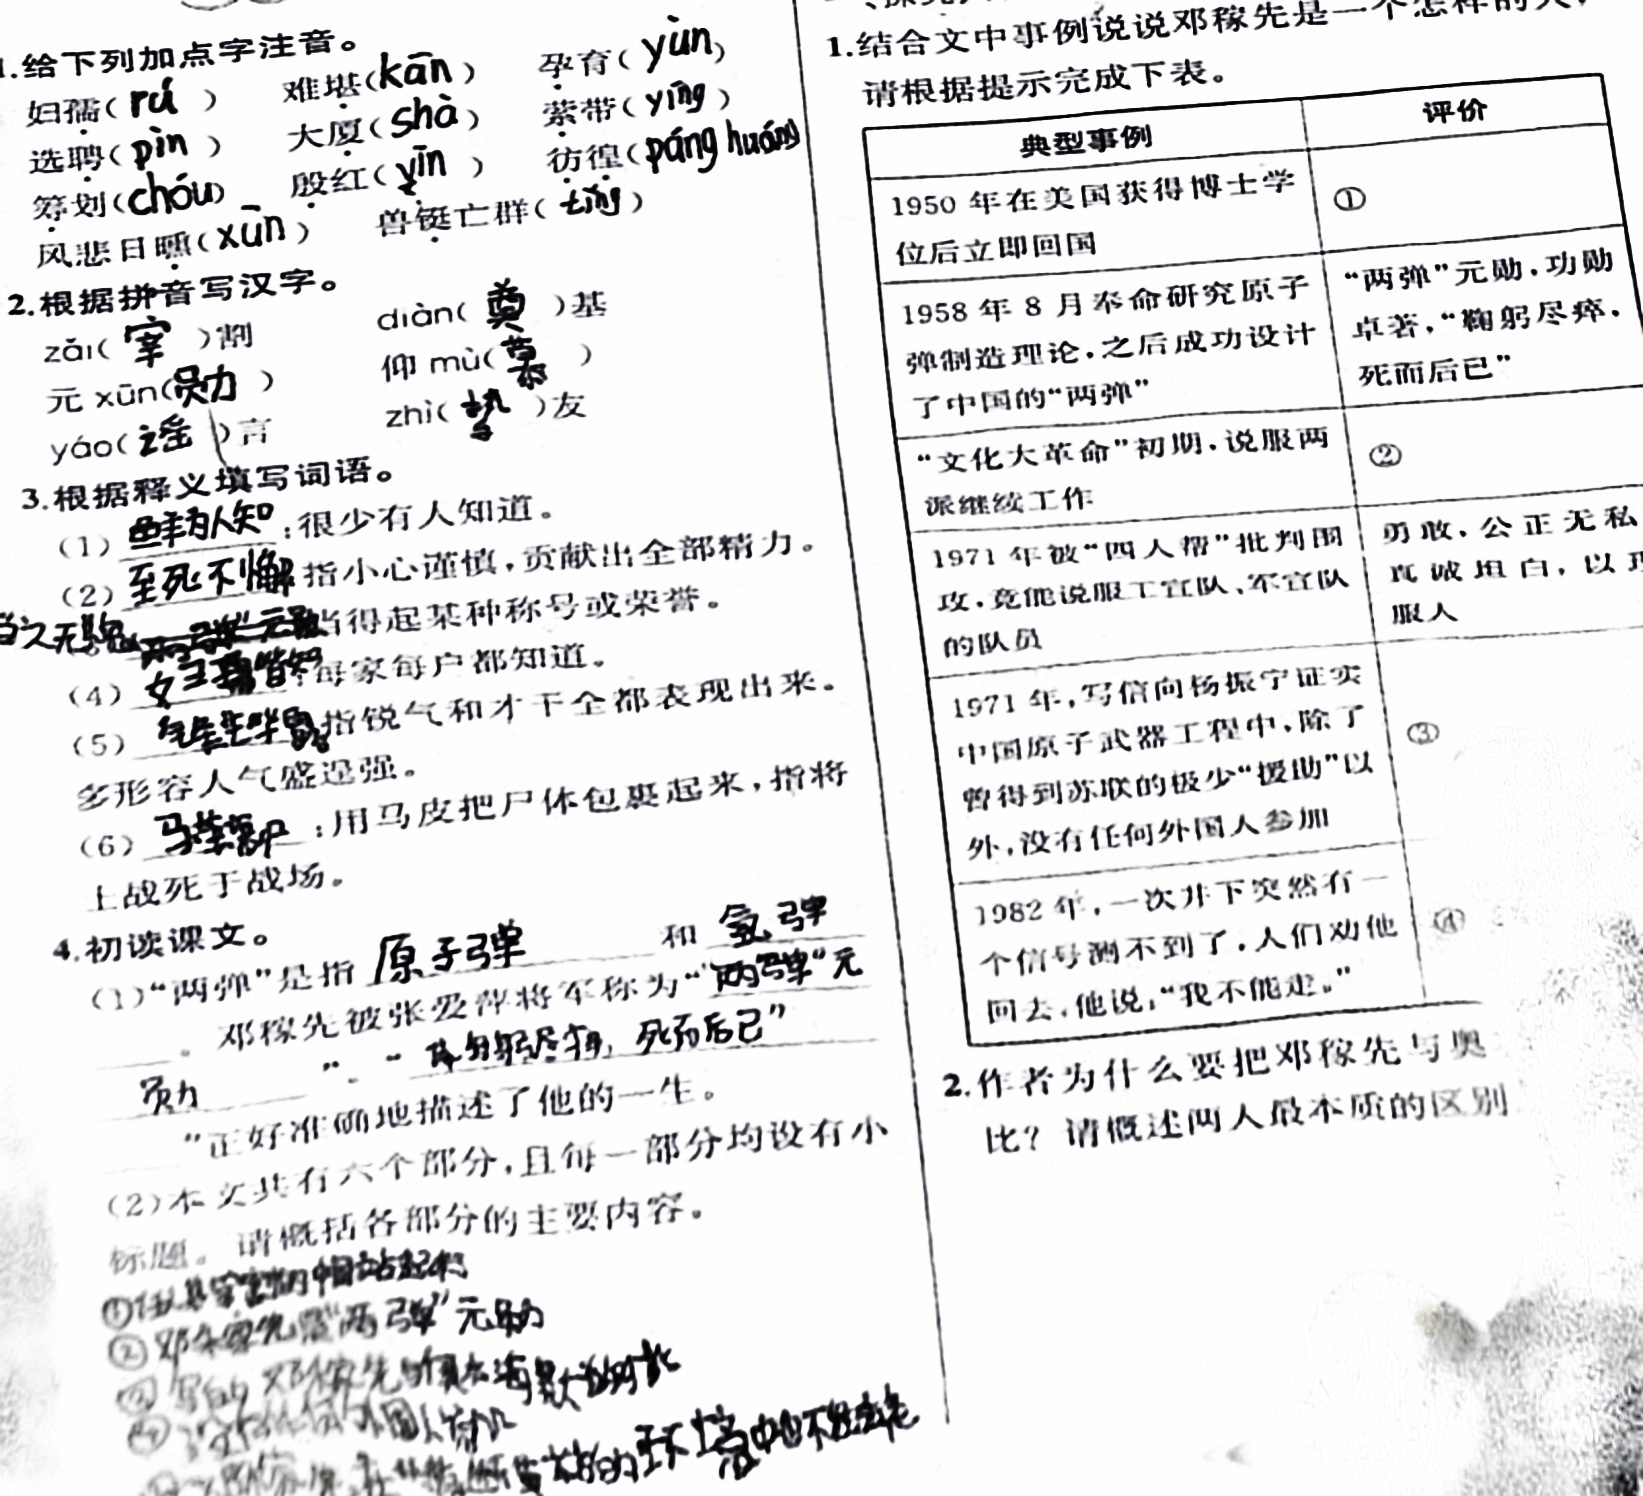 1.给下列加点字注音。
妇孺(rú) 难堪(kān) 孕育(yùn)
选聘(pìn) 大厦(shà) 萦带(yīng)
筹划(chóu) 殷红(yīn) 彷徨(páng huáng)
风悲日曛(xūn) 兽铤亡群(tǐng)
2.根据拼音写汉字。
zǎi(宰)割 diàn(奠)基
元 xūn(勋) 仰 mù(慕)
yáo(谣)言 zhì(挚)友
3.根据释义填写词语。
(1)鲜为人知:很少有人知道。
(2)至死不懈 指小心谨慎,贡献出全部精力。
当之无愧 当得起某种称号或荣誉。
(4) :每家每户都知道。
(5) 指锐气和才干全都表现出来。
多形容人气盛逞强。
(6)马革裹尸:用马皮把尸体包裹起来,指将
士战死于战场。
4.初读课文。
(1)“两弹”是指 原子弹 和 氢弹
。邓稼先被张爱萍将军称为“两弹”元
勋 ”。“鞠躬尽瘁,死而后已”
”正好准确地描述了他的一生。
(2)本文共有六个部分,且每一部分均设有小
标题。请概括各部分的主要内容。
①任人宰割 站起来
②邓稼先是“两弹”元勋
③ 邓稼先与奥本海默
④ 外国人
环境中也不
1.结合文中事例说说邓稼先是一个怎样的人,
请根据提示完成下表。
典型事例 评价
1950 年在美国获得博士学
位后立即回国
①
1958 年 8 月奉命研究原子
弹制造理论,之后成功设计
了中国的“两弹”
“两弹”元勋,功勋
卓著,“鞠躬尽瘁,
死而后已”
“文化大革命”初期,说服两
派继续工作
②
1971 年被“四人帮”批判围
攻,竟能说服工宣队、军宣队
的队员
勇敢,公正无私
真诚坦白,以理
服人
1971 年,写信向杨振宁证实
中国原子武器工程中,除了
曾得到苏联的极少“援助”以
外,没有任何外国人参加
③
1982 年,一次井下突然有一
个信号测不到了,人们劝他
回去,他说,“我不能走。”
④
2.作者为什么要把邓稼先与奥
比?请概述两人最本质的区别